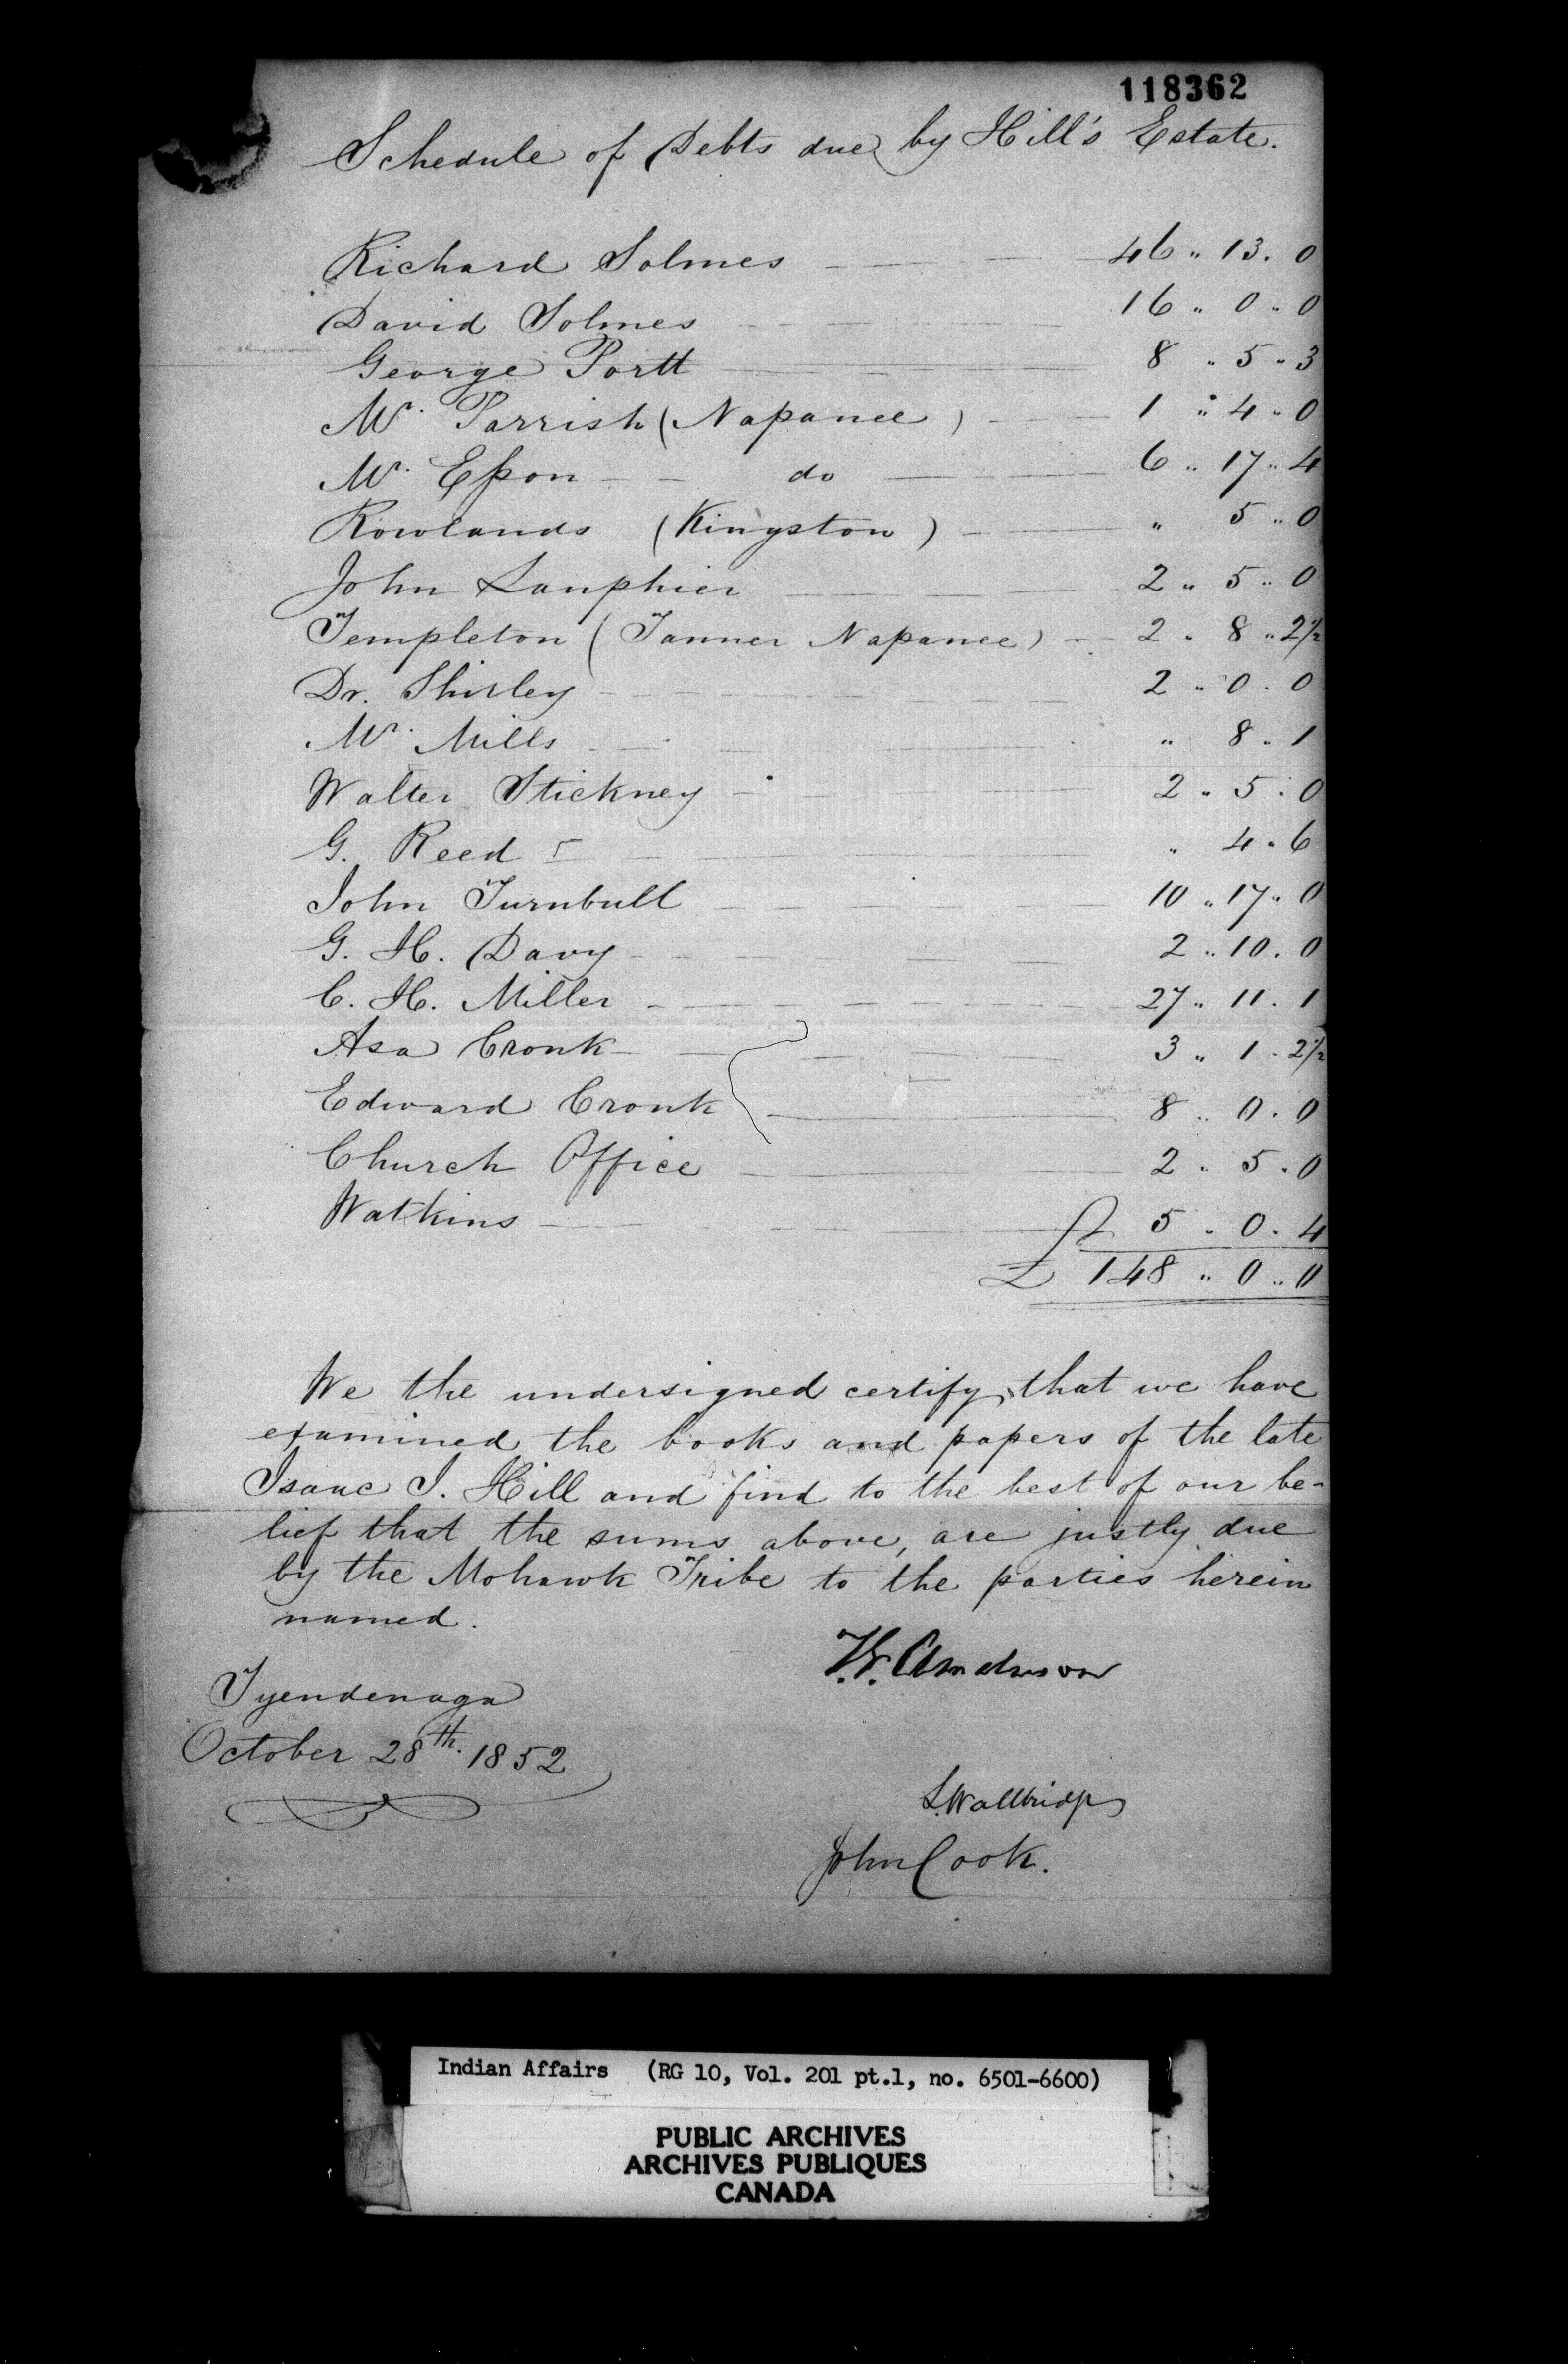 118362
Schedule of Debts due by Hill's Estate.
Richard Solmes 46 " 13 . 0
David Solmes 16 " 0 " 0
George Portt 8 " 5 " 3
Mr. Parrish (Napanee) 1 " 4 " 0
Mr. Esson do 6 " 17 " 4
Rowlands (Kingston) " 5 " 0
John Lanphier 2 " 5 " 0
Templeton (Tanner Napanee) 2 " 8 " 2½
Dr. Shirley 2 " 0 . 0
Mr. Mills " 8 " 1
Walter Stickney 2 " 5 . 0
G. Reed " 4 " 6
John Turnbull 10 " 17 " 0
G. H. Davy 2 " 10 . 0
C. H. Miller 27 " 11 . 1
Asa Cronk 3 " 1 . 2½
Edward Cronk 8 " 0 . 0
Church Office 2 " 5 . 0
Watkins 5 " 0 . 4
£ 148 " 0 " 0
We the undersigned certify, that we have
examined the books and papers of the late
Isaac I. Hill and find to the best of our be-
lief that the sums above, are justly due
by the Mohawk Tribe to the parties herein
named.
T. G. Anderson
Tyendenaga
October 28th. 1852
L. Wallbridge
John Cook.
Indian Affairs (RG 10, Vol. 201 pt.1, no. 6501-6600)
PUBLIC ARCHIVES
ARCHIVES PUBLIQUES
CANADA